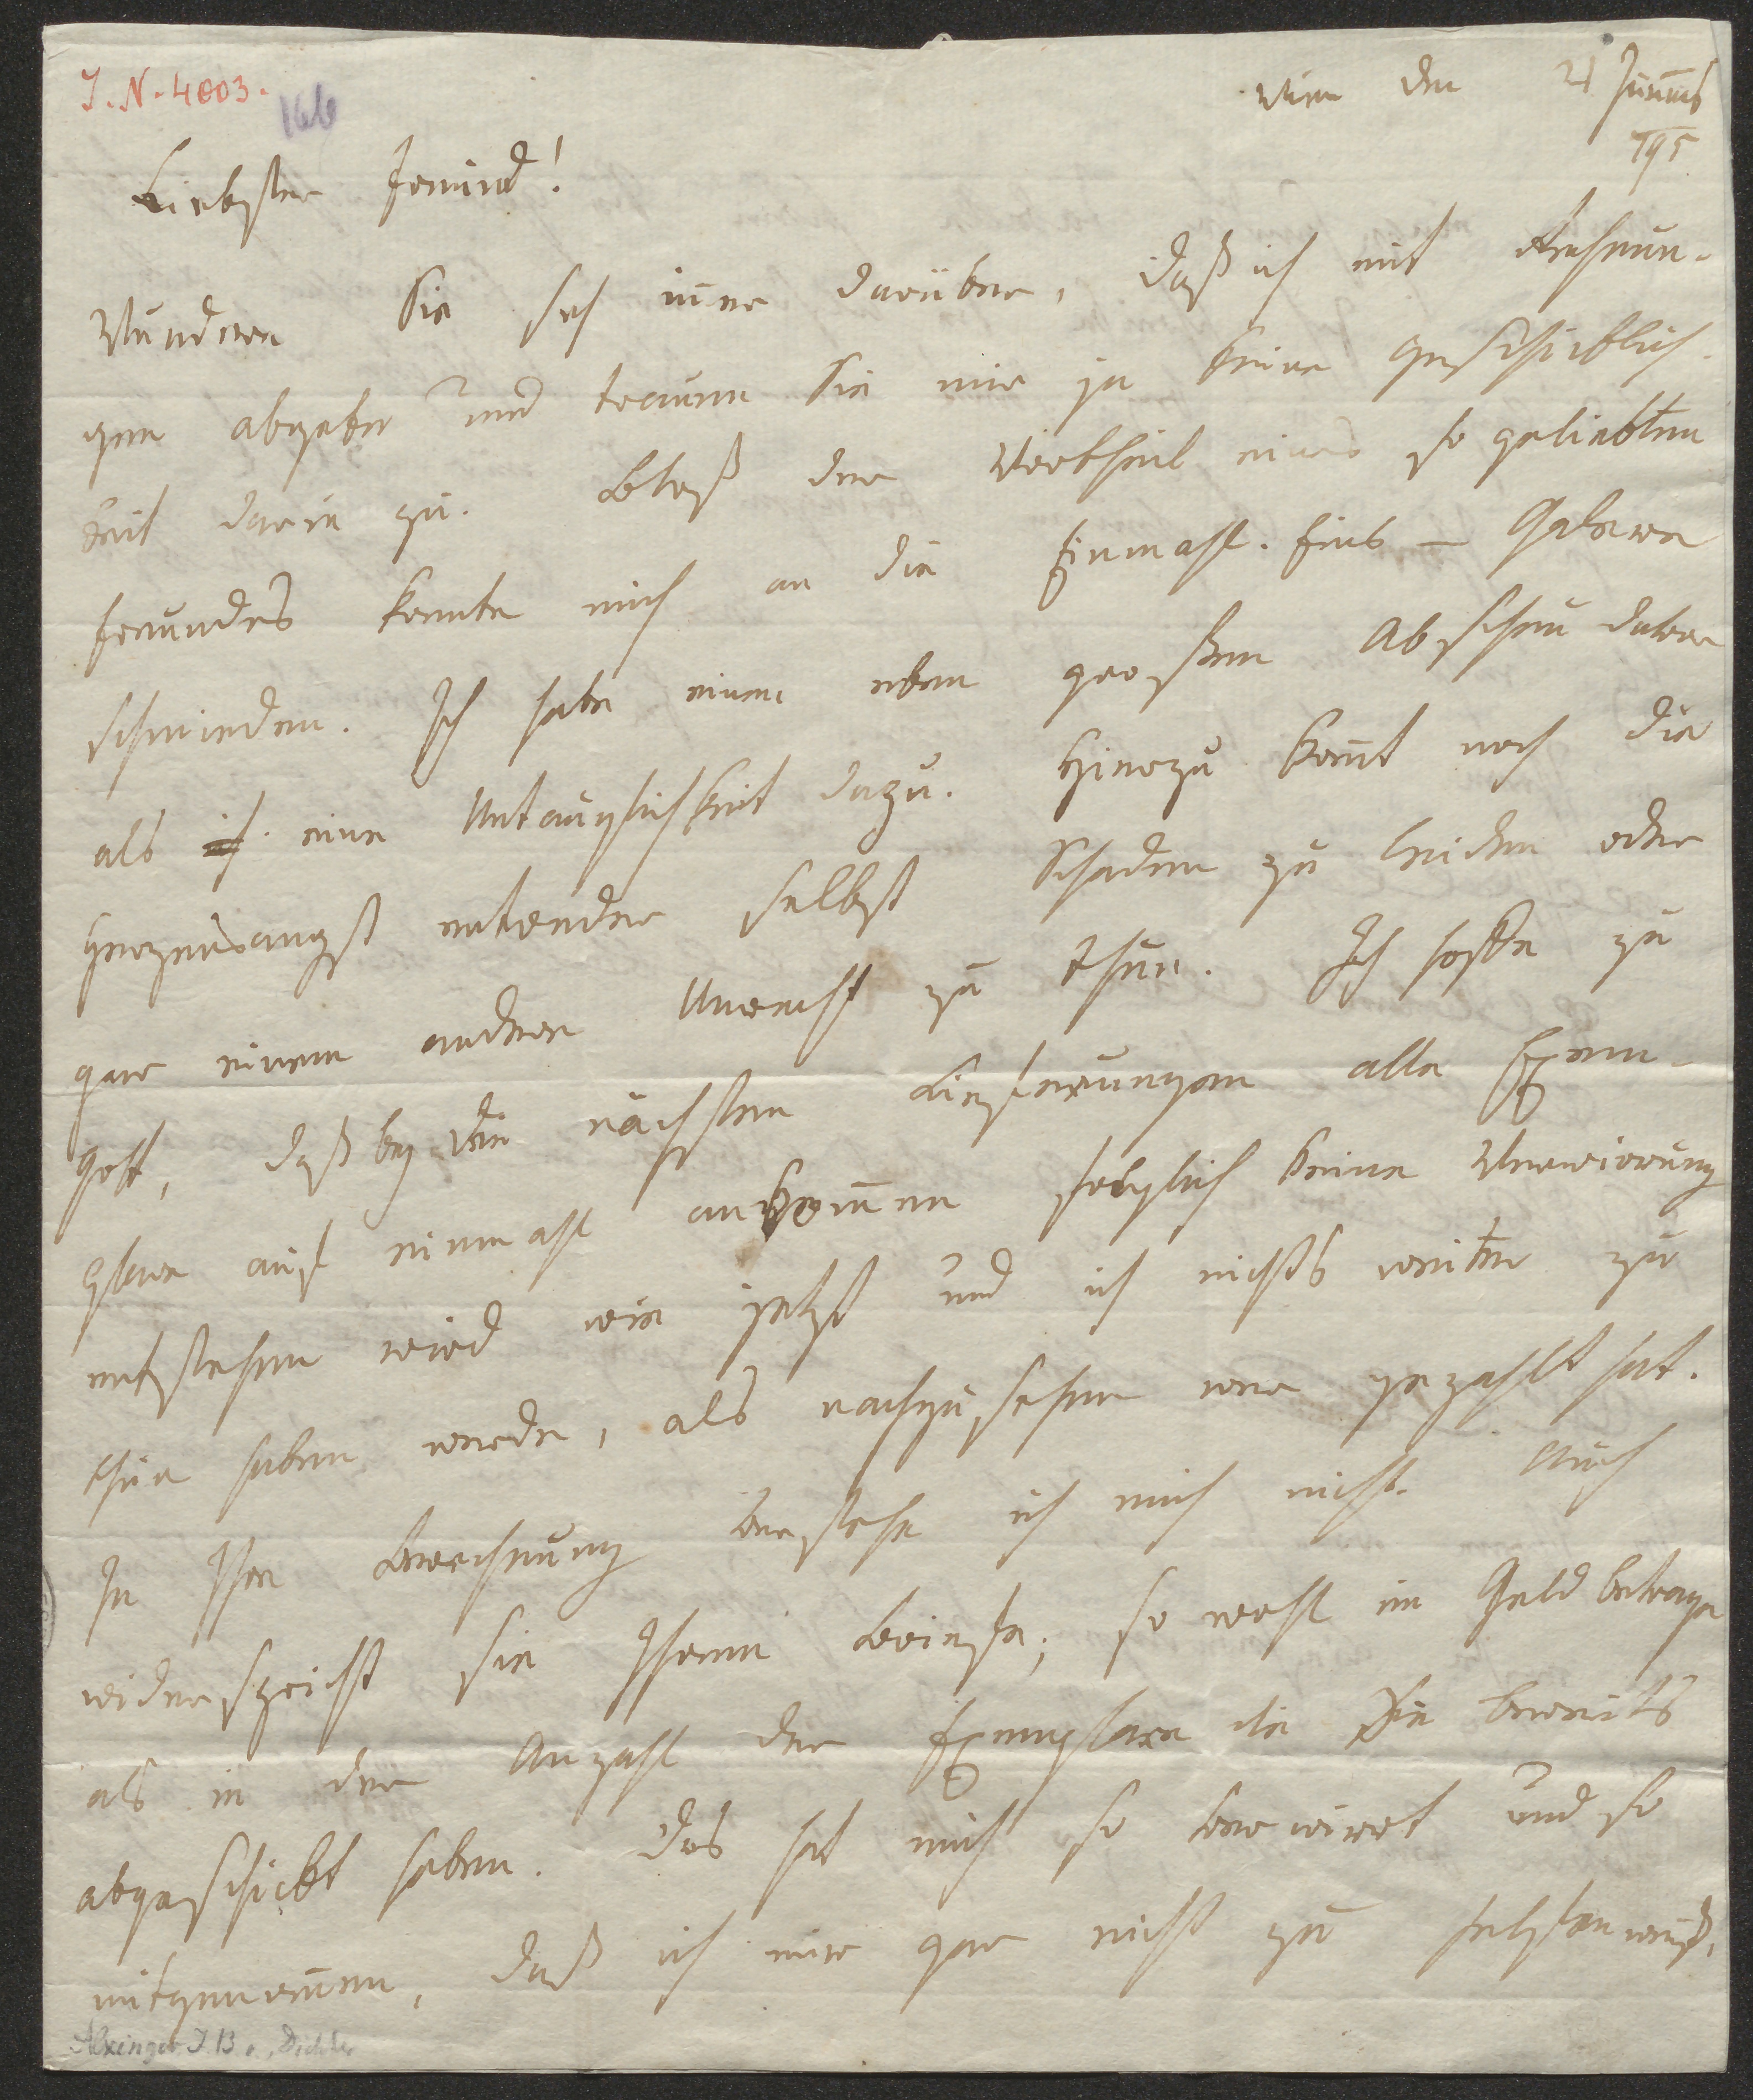 I. N. 4003.
166
Wien den 21 Junius
795
Liebster Freund!
Wundern Sie sich immer darüber, daß ich mit Rechnun-
gen abgebe und trauen Sie mir ja keine Geschicklich-
keit darin zu. Bloß der Vortheil eines so geliebten
Freundes konnte mich an die Einmahl-Eins – Galere
schmieden. Ich habe einen eben großen Abscheu davor
als eine Untauglichkeit dazu. Hierzu kom̅t noch die
Herzensangst entweder selbst Schaden zu leiden oder
gar einem andern Unrecht zu thun. Ich hoffe zu
Gott, daß bey den nächsten Lieferungen alle Exem-
plare auf einmahl ankom̅en folglich keine Verwirrung
entstehen wird wie jetzt und ich nichts weiter zu
thun haben werde, als nachzusehen wer gezahlt hat.
In Ihre Berechnung verstehe ich mich nicht. Auch
widerspricht sie Ihrem Briefe; so wohl im Geldbetrage
als in der Anzahl der Exemplare die Sie bereits
abgeschickt haben. Das hat mich so verwirrt und so
mitgenom̅en, daß ich mir gar nicht zu helfen weiß.
Alxinger J. B. v., Dichter